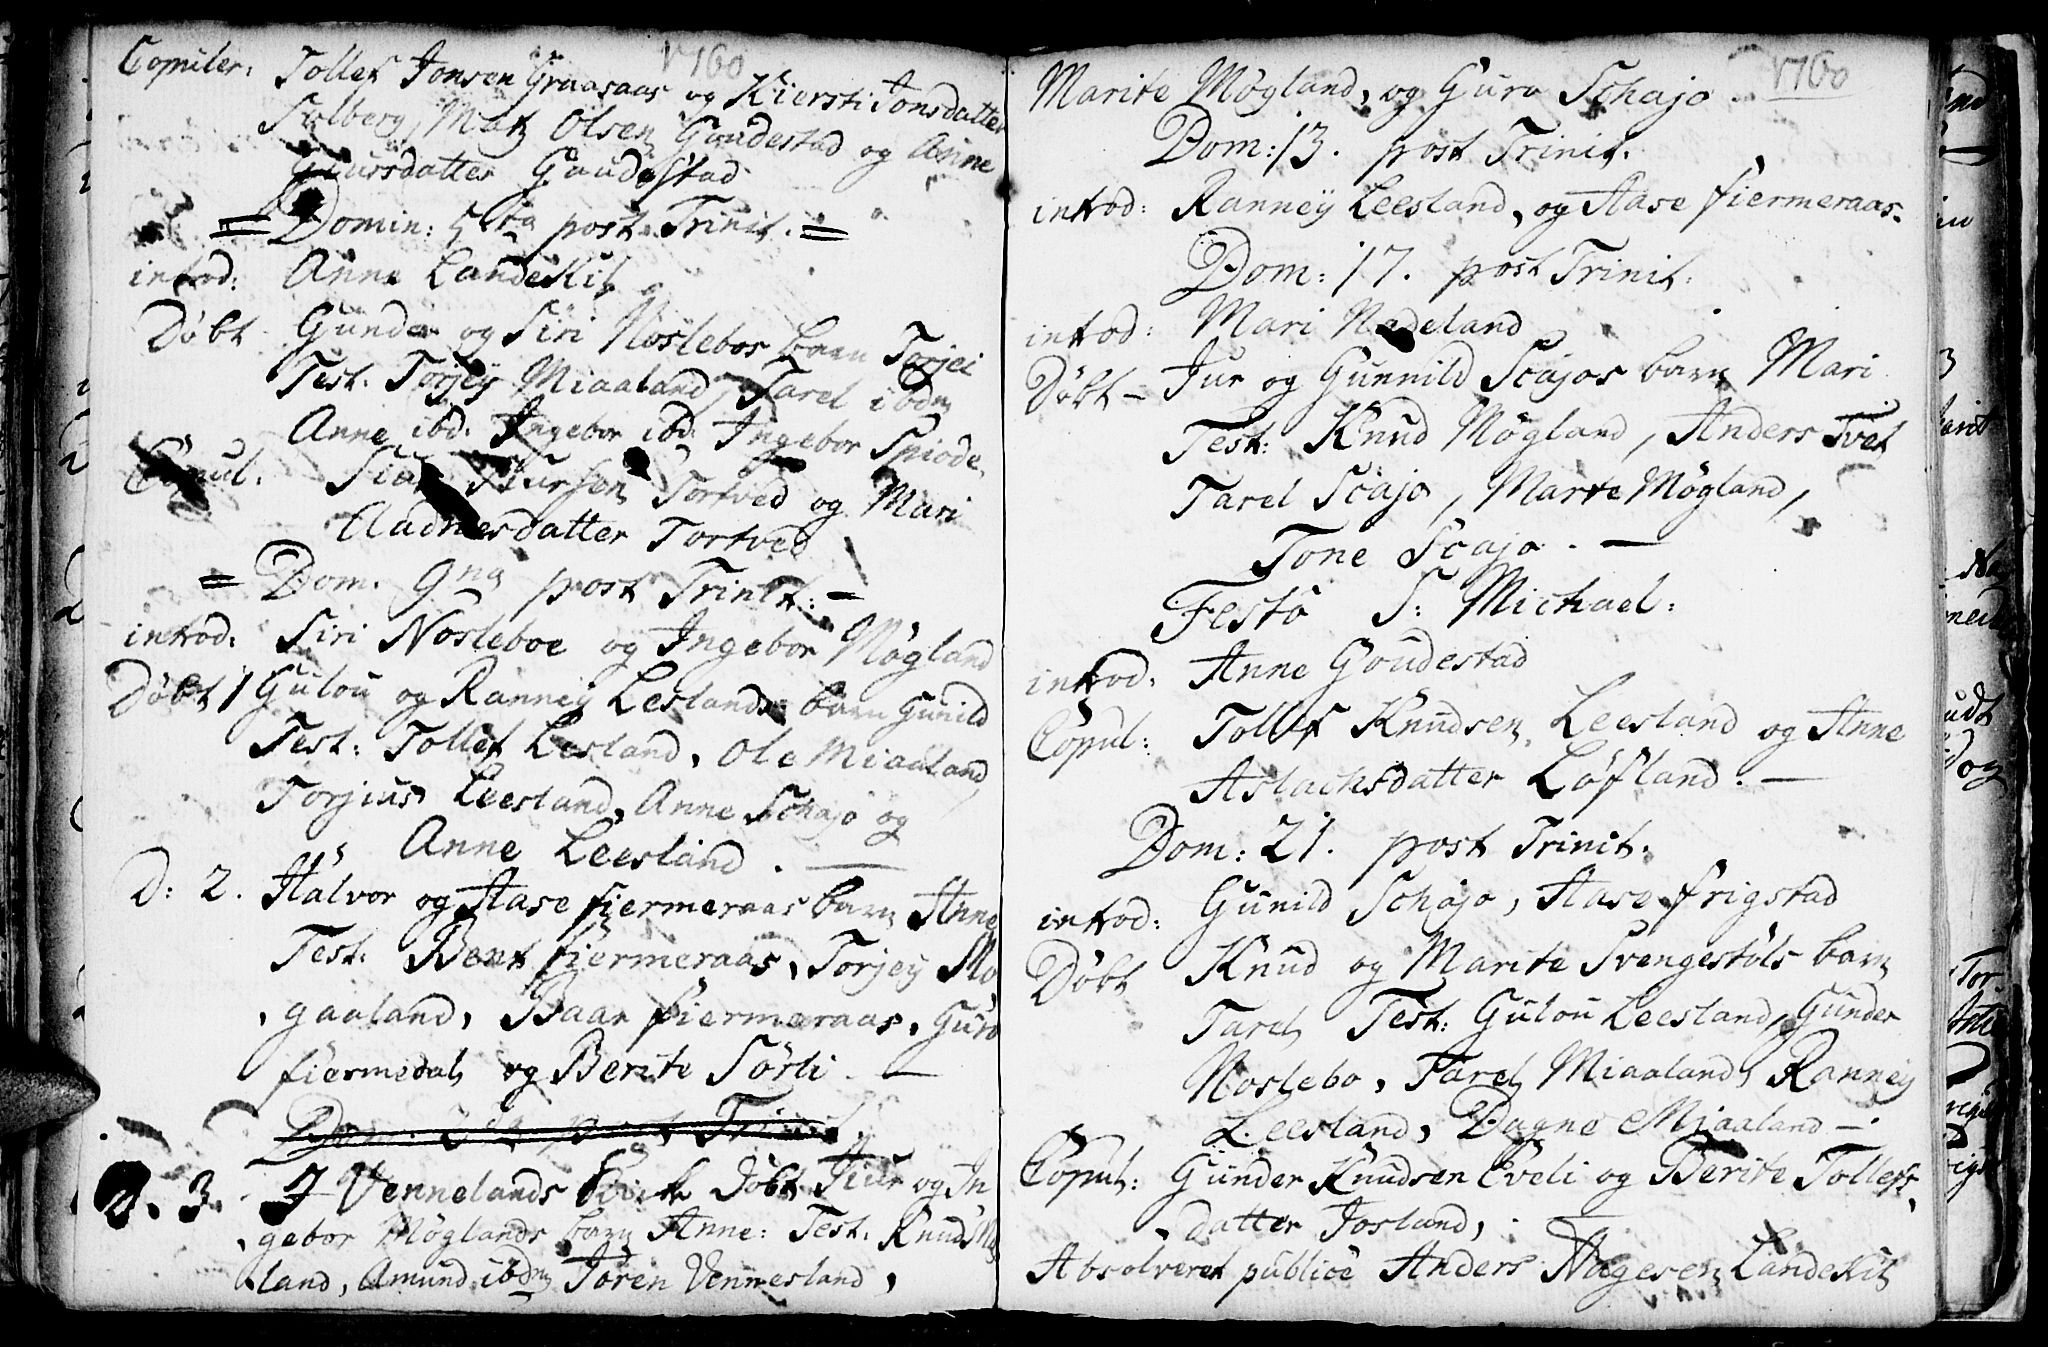 1760
Copuler: Tollef Jonsen Graasaas og Kiersti Jonsdatter
Solberg, Matz Olsen Gaudestad og Anne
Siursdatter Gaudestad
= Domin: 5ta post Trinit. =
introd: Anne Landeskil
Døbt Gunder og Siri Noslebos barn Torjei
Test: Torjey Miaaland, Tarel ibdn
Anne ibd: Ingebor ibd: Ingebor Spiode
Copul. Siur Siursen Tortved og Mari
Aadnesdatter Tortved
= Dom. 9na post Trinit: -
introd: Siri Nosleboe og Ingebor Møgland
Døbt 1 Gulou og Ranney Leslands barn Gunild
Test: Tollef Lesland, Ole Miaaland,
Torjius Leesland, Anne Schajo og
Anne Leesland. —
D: 2. Halvor og Aase fiermeraas barn Anne
Test: Bent fiermeraas, Torjey Mo
gaaland, Baar fiermeraas, Guro
fiermedal og Berite Sørli —
Dom: post Trinit.
D. 3. I Vennelands Kirke Døbt Siur og In
gebor Møglands barn Anne: Test: Knud Møg
land, Amund ibdn Jøren Vennesland,
1760
Marite Møgland, og Guro Schajo.
Dom: 13. post Trinit.
introd: Ranney Leesland, og Aase fiermeraas.
Dom: 17. post Trinit:
introd: Mari Nedeland
Døbt - Jur og Gunnild Scajos barn Mari
Test: Knud Møgland, Anders Tvet
Tarel Scajo, Marte Møgland,
Tone Scajo. —
Festo S: Michael:
introd: Anne Goudestad
Copul: Tollef Knudsen Leesland og Anne
Aslachsdatter Løfland. —
Dom: 21. post Trinit.
introd: Gunild Schajo, Aase frigstad
Døbt Knud og Marite Svengestøls barn
Tarel Test: Gulou Leesland, Gunder
Noslebo, Tarel Miaaland, Ranney
Leesland, Dagne Miaaland —.
Copul: Gunder Knudsen Eveli og Berite Tollefs
datter Josland,
Absolveret publice Anders Aagesen Landeskil